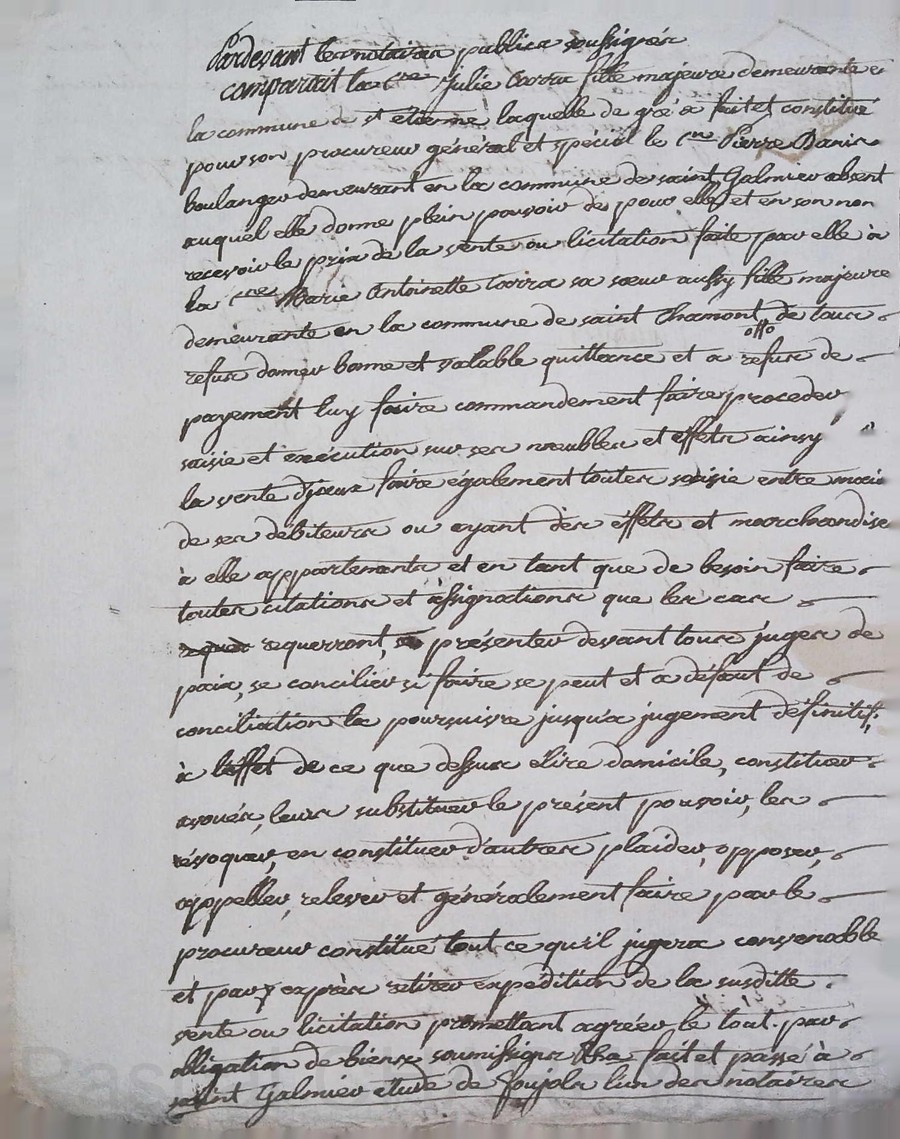 Pardevant les notaires publics soussignés
comparait la Cne Julie Carra fille majeure demeurante en
la commune de st etienne laquelle de gré a fait et constitué
pour son procureur général et spécial le Cen Pierre
boulanger demeurant en la commune de saint Galmier absent
auquel elle donne plein pouvoir de pour elle et en son non
recevoir le prix de la vente ou licitation faite par elle à
la Cne Marie Antoinette Carra sa sœur aussy fille majeure
demeurante en la commune de saint Chamont, de tous
refus donner bonne et valable quittance et a refus de
payement luy faire commandement faire proceder
saisie et exécution sur ses meubles et effets ainsy
la vente d'yceux faire également toutes saisie entre mais
de ses débiteurs ou ayant des éffets et marchandise
à elle appartements et en tant que de besoin faire
toutes citations et assignations que les cas
requerront, présenter devant tous juges de
paix, se concilier si faire se peut et a défaut de
conciliation la poursuivre jusqu'a jugement définitif,
à l'éffet de ce que dessus élire domicile, constituer
avoués, leurs substituer le présent pouvoir, les
révoquer, en constituer d'autres plaider, opposer,
appeller, relever et généralement faire par le
procureur constitué tout ce qu'il jugera convenable
et par exprès retirer expédition de la susditte
vente ou licitation promettant agréer, le tout. par
obligation de biens soumissions fait et passé à
saint Galmier etude de Poujols l'un des notaires